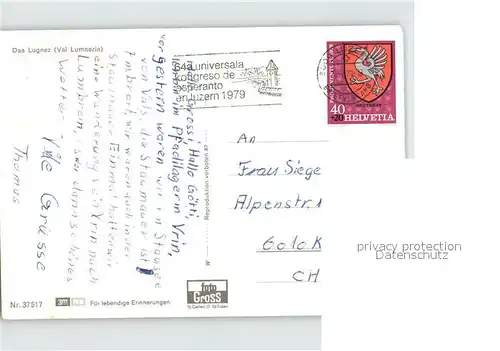 Das Lugnez (Val Lumnezia)
64a universala
kongreso de
esperanto
en luzern 1979
PRO JUVENTUTE
40
+20
HELVETIA
Grossi, Hallo Götti,
im Pfadilager in Vrin,
vorgestern waren wir im Stausee
von Vals, die Staumauer ist
wir waren auch in der
Staumauer. Einmal hatten wir
eine Wanderung von Vrin nach
Lumbrein, bei schönes
Wetter. Viele Grüsse
Thomas
Reproduktion verboten
An
Frau Siege
Alpenstr. 1
6010 K
CH
privacy protection
Datenschutz
foto
GROSS
St. Gallen
Nr. 37517
Für lebendige Erinnerungen